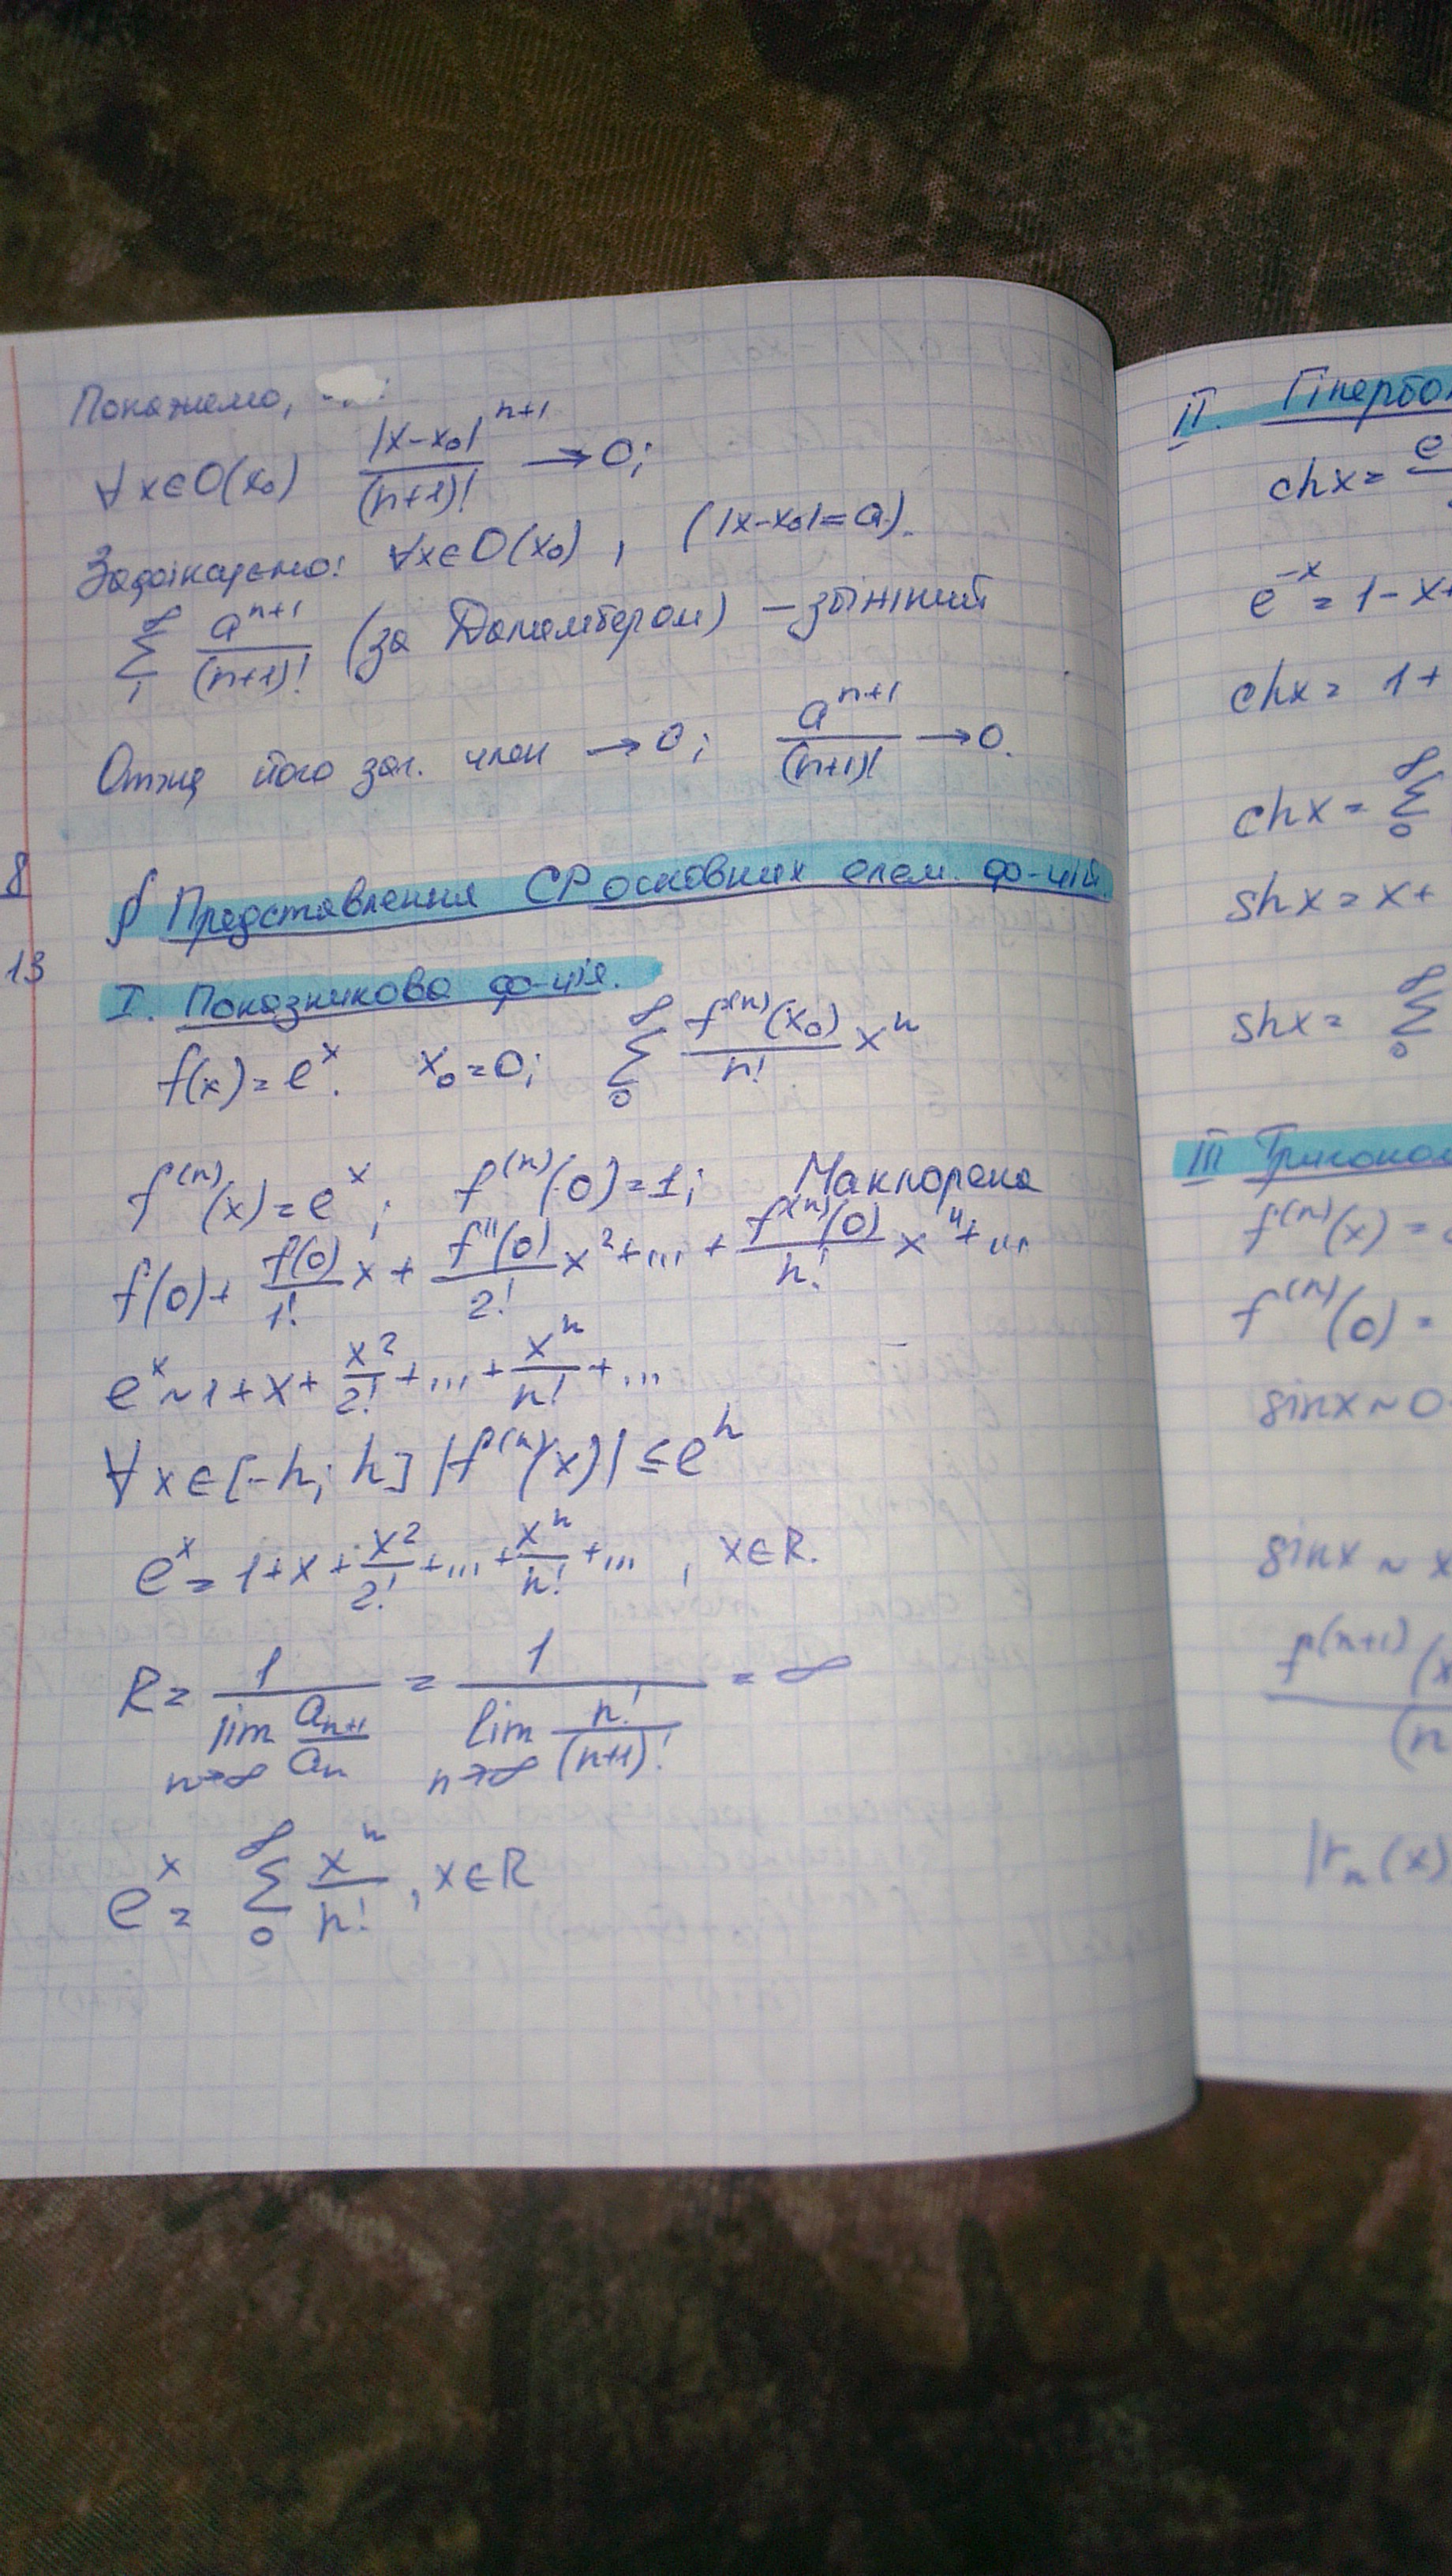 Покажемо,
∀x∈O(x₀) |x-x₀|ⁿ⁺¹/(n+1)! → 0;
Зафіксуємо: ∀x∈O(x₀), (|x-x₀|=a).
∑₁^∞ aⁿ⁺¹/(n+1)! (за Даламбером) – збіжний
Отже його заг. член → 0; aⁿ⁺¹/(n+1)! → 0.
8
§ Представлення СР основних елем. ф-цій.
13
I. Показникова ф-ція.
f(x) = eˣ. x₀=0; ∑₀^∞ f⁽ⁿ⁾(x₀)/n! xⁿ
f⁽ⁿ⁾(x) = eˣ; f⁽ⁿ⁾(0)=1; Маклорена
f(0)+ f(0)/1! x + f''(0)/2! x² +...+ f⁽ⁿ⁾(0)/n! xⁿ+...
eˣ ~ 1+x+ x²/2! +...+ xⁿ/n! +...
∀x∈[-h; h] |f⁽ⁿ⁾(x)| ≤ eʰ
eˣ = 1+x+ x²/2! +...+ xⁿ/n! +..., x∈R.
R = 1/(lim n→∞ aₙ₊₁/aₙ) = 1/(lim n→∞ n!/(n+1)!) = ∞
eˣ = ∑₀^∞ xⁿ/n!, x∈R
II. Гіпербол
chx = e
e⁻ˣ = 1-x+
chx = 1+
chx = ∑₀^∞
shx = x+
shx = ∑₀^∞
III Тригоном
f⁽ⁿ⁾(x) =
f⁽ⁿ⁾(0) =
sinx ~ 0
sinx ~ x
f⁽ⁿ⁺¹⁾(x
(n
|rₙ(x)